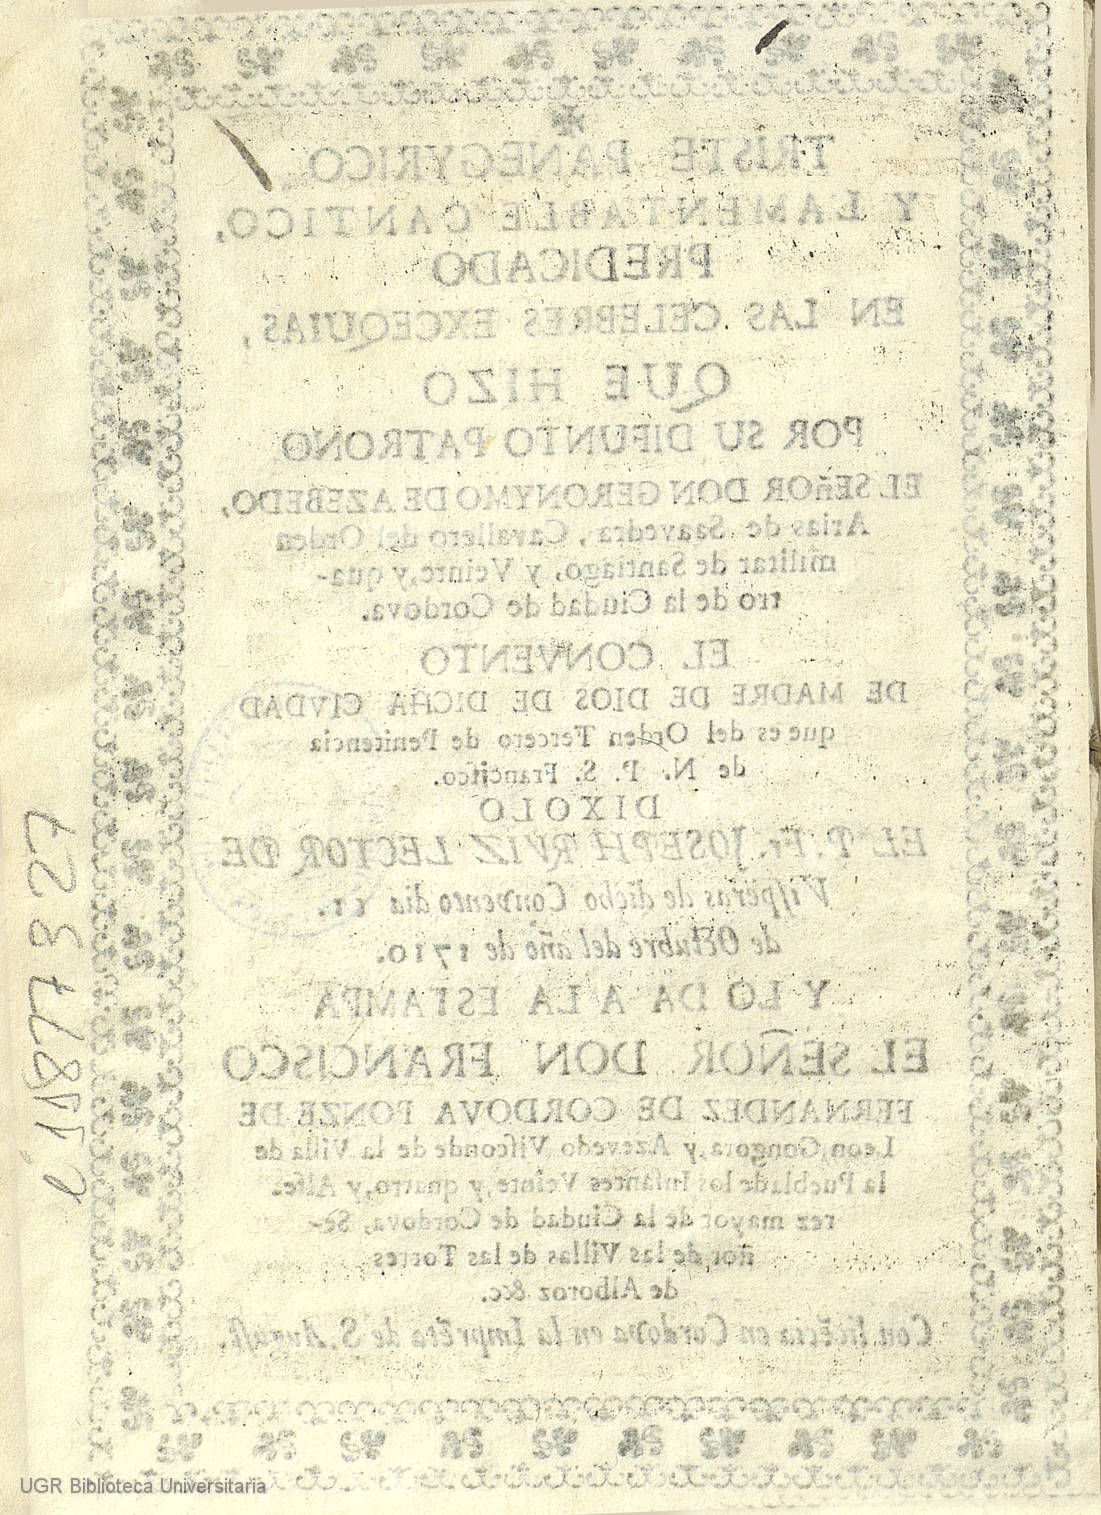 TRISTE PANEGYRICO
Y LAMENTABLE CANTICO,
PREDICADO
EN LAS CELEBRES EXCEQUIAS,
QUE HIZO
POR SU DIFUNTO PATRONO
EL SEñOR DON GERONYMO DE AZEBEDO,
Arias de Saavedra, Cavallero del Orden
militar de Santiago, y Veinte,y qua-
tro de la Ciudad de Cordova.
EL CONVENTO
DE MADRE DE DIOS DE DICHA CIVDAD
que es del Orden Tercero de Penitencia
de N. P. S. Francisco.
DIXOLO
EL P. Fr. JOSEPH RVIZ LECTOR DE
Visperas de dicho Convento dia 11.
de Octubre del año de 1710.
Y LO DA A LA ESTAMPA
EL SEÑOR DON FRANCISCO
FERNANDEZ DE CORDOVA PONZE DE
Leon, Gongora, y Azevedo Visconde de la Villa de
la Puebla de los Infantes Veinte, y quatro, y Alfe-
rez mayor de la Ciudad de Cordova, Se-
ñor de las Villas de las Torres
de Alboroz &c.
Con licẽcia en Cordova en la Imprẽta de S. August.
UGR Biblioteca Universitaria